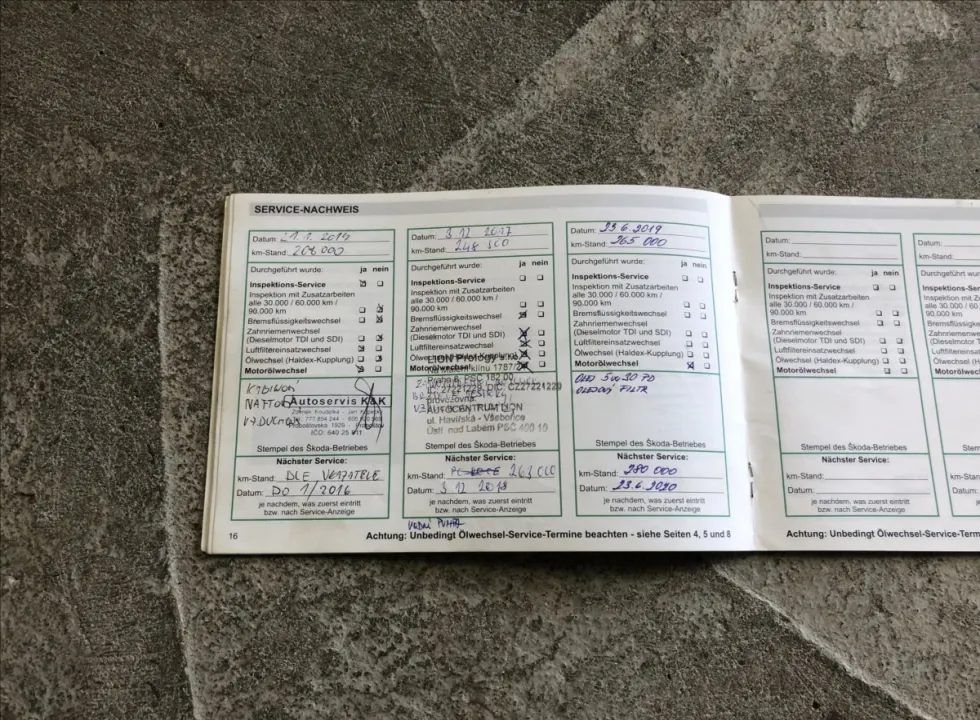 SERVICE-NACHWEIS
Datum:
km-Stand: 208 000
Durchgeführt wurde: ja nein
Inspektions-Service
Inspektion mit Zusatzarbeiten
alle 30.000 / 60.000 km /
90.000 km
Bremsflüssigkeitswechsel
Zahnriemenwechsel
(Dieselmotor TDI und SDI)
Luftfiltereinsatzwechsel
Ölwechsel (Haldex-Kupplung)
Motorölwechsel
Autoservis K&K
Stempel des Škoda-Betriebes
Nächster Service:
km-Stand: DLE
Datum: DO 1/2016
je nachdem, was zuerst eintritt
bzw. nach Service-Anzeige
16
Datum: 3 12 2017
km-Stand: 248 000
Durchgeführt wurde: ja nein
Inspektions-Service
Inspektion mit Zusatzarbeiten
alle 30.000 / 60.000 km /
90.000 km
Bremsflüssigkeitswechsel
Zahnriemenwechsel
(Dieselmotor TDI und SDI)
Luftfiltereinsatzwechsel
Motorölwechsel
AUTOCENTRUM LION
ul. Havířská - Všebořice
Ústí nad Labem PSČ 400 10
Stempel des Škoda-Betriebes
Nächster Service:
km-Stand: 263 000
Datum: 3 12 2018
je nachdem, was zuerst eintritt
bzw. nach Service-Anzeige
Datum: 23 6 2019
km-Stand 265 000
Durchgeführt wurde: ja nein
Inspektions-Service
Inspektion mit Zusatzarbeiten
alle 30.000 / 60.000 km /
90.000 km
Bremsflüssigkeitswechsel
Zahnriemenwechsel
(Dieselmotor TDI und SDI)
Luftfiltereinsatzwechsel
Ölwechsel (Haldex-Kupplung)
Motorölwechsel
OLEJ 5W-30 PD
OLEJOVÝ FILTR
Stempel des Škoda-Betriebes
Nächster Service:
km-Stand: 280 000
Datum: 23.6.2020
je nachdem, was zuerst eintritt
bzw. nach Service-Anzeige
Achtung: Unbedingt Ölwechsel-Service-Termine beachten - siehe Seiten 4, 5 und 8
Datum:
km-Stand:
Durchgeführt wurde: ja nein
Inspektions-Service
Inspektion mit Zusatzarbeiten
alle 30.000 / 60.000 km /
90.000 km
Bremsflüssigkeitswechsel
Zahnriemenwechsel
(Dieselmotor TDI und SDI)
Luftfiltereinsatzwechsel
Ölwechsel (Haldex-Kupplung)
Motorölwechsel
Stempel des Škoda-Betriebes
Nächster Service:
km-Stand:
Datum:
je nachdem, was zuerst eintritt
bzw. nach Service-Anzeige
Achtung: Unbedingt Ölwechsel-Service-Term
Datum:
km-Stand: